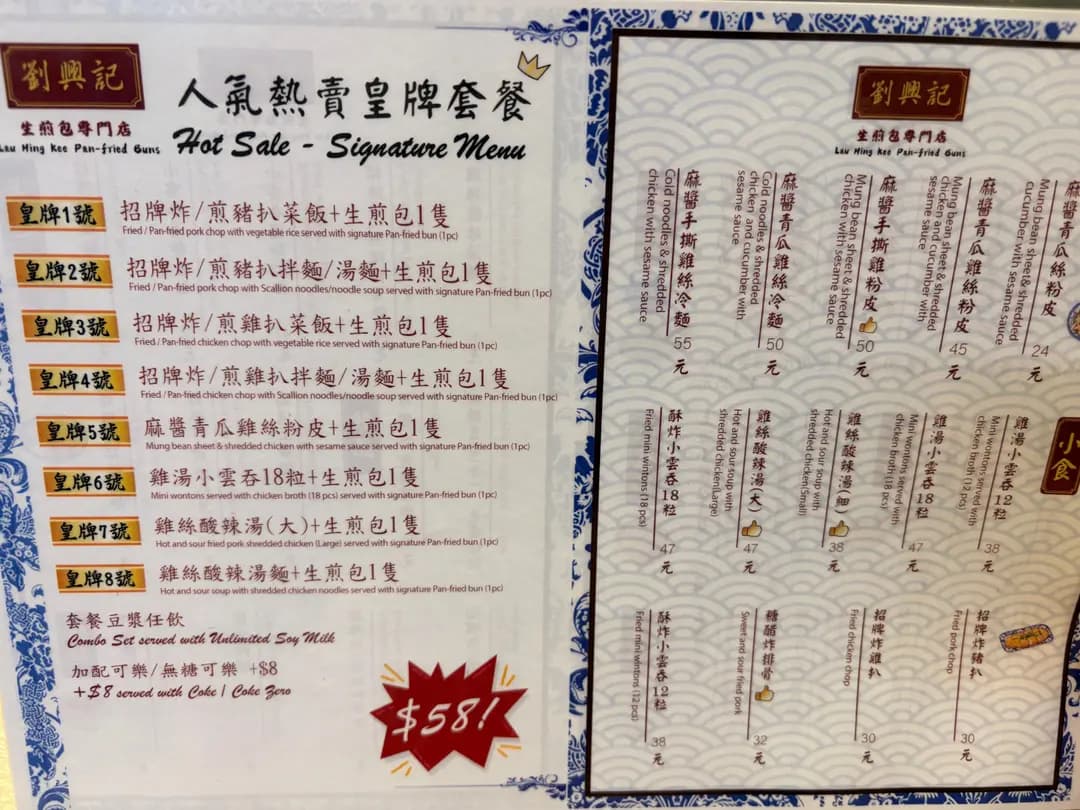 劉興記
生煎包專門店
Lau Hing Kee Pan-fried Buns
人氣熱賣皇牌套餐
Hot Sale - Signature Menu
皇牌1號
招牌炸/煎豬扒菜飯+生煎包1隻
Fried / Pan-fried pork chop with vegetable rice served with signature Pan-fried bun (1pc)
皇牌2號
招牌炸/煎豬扒拌麵/湯麵+生煎包1隻
Fried / Pan-fried pork chop with Scallion noodles/noodle soup served with signature Pan-fried bun (1pc)
皇牌3號
招牌炸/煎雞扒菜飯+生煎包1隻
Fried / Pan-fried chicken chop with vegetable rice served with signature Pan-fried bun (1pc)
皇牌4號
招牌炸/煎雞扒拌麵/湯麵+生煎包1隻
Fried / Pan-fried chicken chop with Scallion noodles/noodle soup served with signature Pan-fried bun (1pc)
皇牌5號
麻醬青瓜雞絲粉皮+生煎包1隻
Mung bean sheet & shredded chicken with sesame sauce served with signature Pan-fried bun (1pc)
皇牌6號
雞湯小雲吞18粒+生煎包1隻
Mini wontons served with chicken broth (18 pcs) served with signature Pan-fried bun (1pc)
皇牌7號
雞絲酸辣湯(大)+生煎包1隻
Hot and sour fried pork shredded chicken (Large) served with signature Pan-fried bun (1pc)
皇牌8號
雞絲酸辣湯麵+生煎包1隻
Hot and sour soup with shredded chicken noodles served with signature Pan-fried bun (1pc)
套餐豆漿任飲
Combo Set served with Unlimited Soy Milk
加配可樂/無糖可樂 +$8
+$8 served with Coke / Coke Zero
$58!
劉興記
生煎包專門店
Lau Hing Kee Pan-fried Buns
小食
麻醬青瓜粉皮
Mung bean sheet& shredded
cucumber with sesame sauce
24元
麻醬青瓜雞絲粉皮
Mung bean sheet & shredded
chicken and cucumber with
sesame sauce
45元
麻醬手撕雞粉皮
Mung bean sheet & shredded
chicken with sesame sauce
50元
麻醬青瓜雞絲冷麵
Cold noodles & shredded
chicken and cucumber with
sesame sauce
50元
麻醬手撕雞絲冷麵
Cold noodles & shredded
chicken with sesame sauce
55元
雞湯小雲吞12粒
Mini wontons served with
chicken broth (12 pcs)
38元
雞湯小雲吞18粒
Mini wontons served with
chicken broth (18 pcs)
47元
雞絲酸辣湯(細)
Hot and sour soup with
shredded chicken(Small)
38元
雞絲酸辣湯(大)
Hot and sour soup with
shredded chicken(Large)
47元
酥炸小雲吞18粒
Fried mini wintons (18 pcs)
47元
招牌炸豬扒
Fried pork chop
30元
招牌炸雞扒
Fried chicken chop
30元
糖醋炸排骨
Sweet and sour fried pork
32元
酥炸小雲吞12粒
Fried mini wintons (12 pcs)
38元